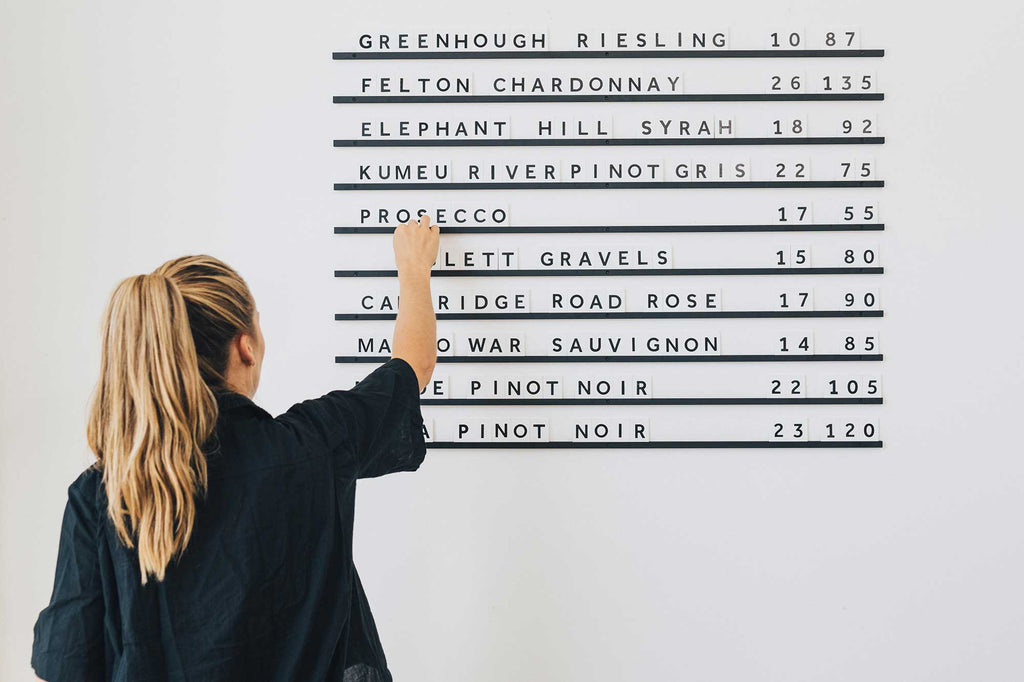 GREENHOUGH RIESLING 10 87
FELTON CHARDONNAY 26 135
ELEPHANT HILL SYRAH 18 92
KUMEU RIVER PINOT GRIS 22 75
PROSECCO 17 55
GRAVELS 15 80
ROAD ROSE 17 90
WAR SAUVIGNON 14 85
PINOT NOIR 22 105
PINOT NOIR 23 120